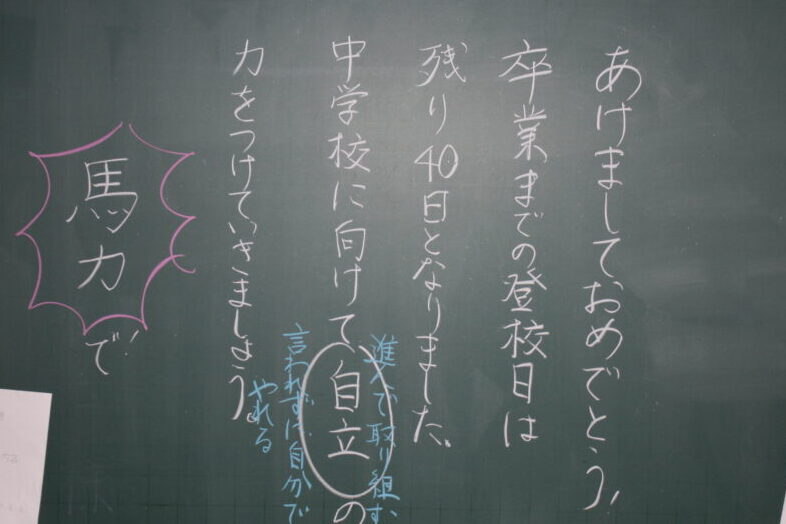 あけましておめでとう!
卒業までの登校日は
残り40日となりました。
中学校に向けて自立の
進んで取り組む
言われずに自分で
やれる
力をつけていきましょう。
馬力で!